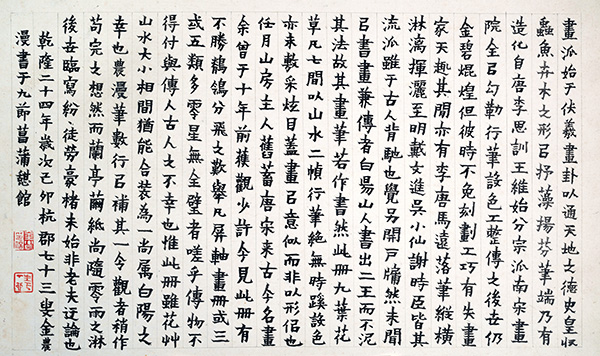 畫派始于伏羲畫卦以通天地之德史皇收
蟲魚卉木之形㠯抒藻揚芬筆端乃有
造化自唐李思訓王維始分宗派南宋畫
院全㠯勾勒行筆設色工整傳之後世仍
金碧焜煌但彼時不免刻劃工巧有失畫
家天趣其間亦有李唐馬遠落筆縱橫
淋漓揮灑至明戴文進吳小仙謝時臣皆其
流派雖于古人背馳也覺另開戶牖然未聞
㠯書畫兼傳者白昜山人書出二王而不泥
其法故其畫筆若作書然此冊九葉花
草凡七間以山水二幀行筆絕無時蹊設色
亦未敷采炫目蓋畫㠯意似而非以形侣也
任月山房主人舊蓄唐宋来古今名畫
余曾于十年前獲觀少許今見此冊有
不勝鶺鴒分飛之歎舉凡屏軸畫冊或三
或五類多零星無全璧者嗟乎傳物不
得付與傳人古人之不幸也惟此冊雖花艸
山水大小相間猶能合裝為一尚屬白陽之
幸也農漫筆數行㠯補其一令觀者稍作
苟完之想然而蘭亭繭紙尚隨零雨之淋
後世臨寫紛紛徒勞豪楮未始非老夫迂論也
乾隆二十四年歲次己卯杭郡七十三叟金農
漫書于九節菖蒲憇館